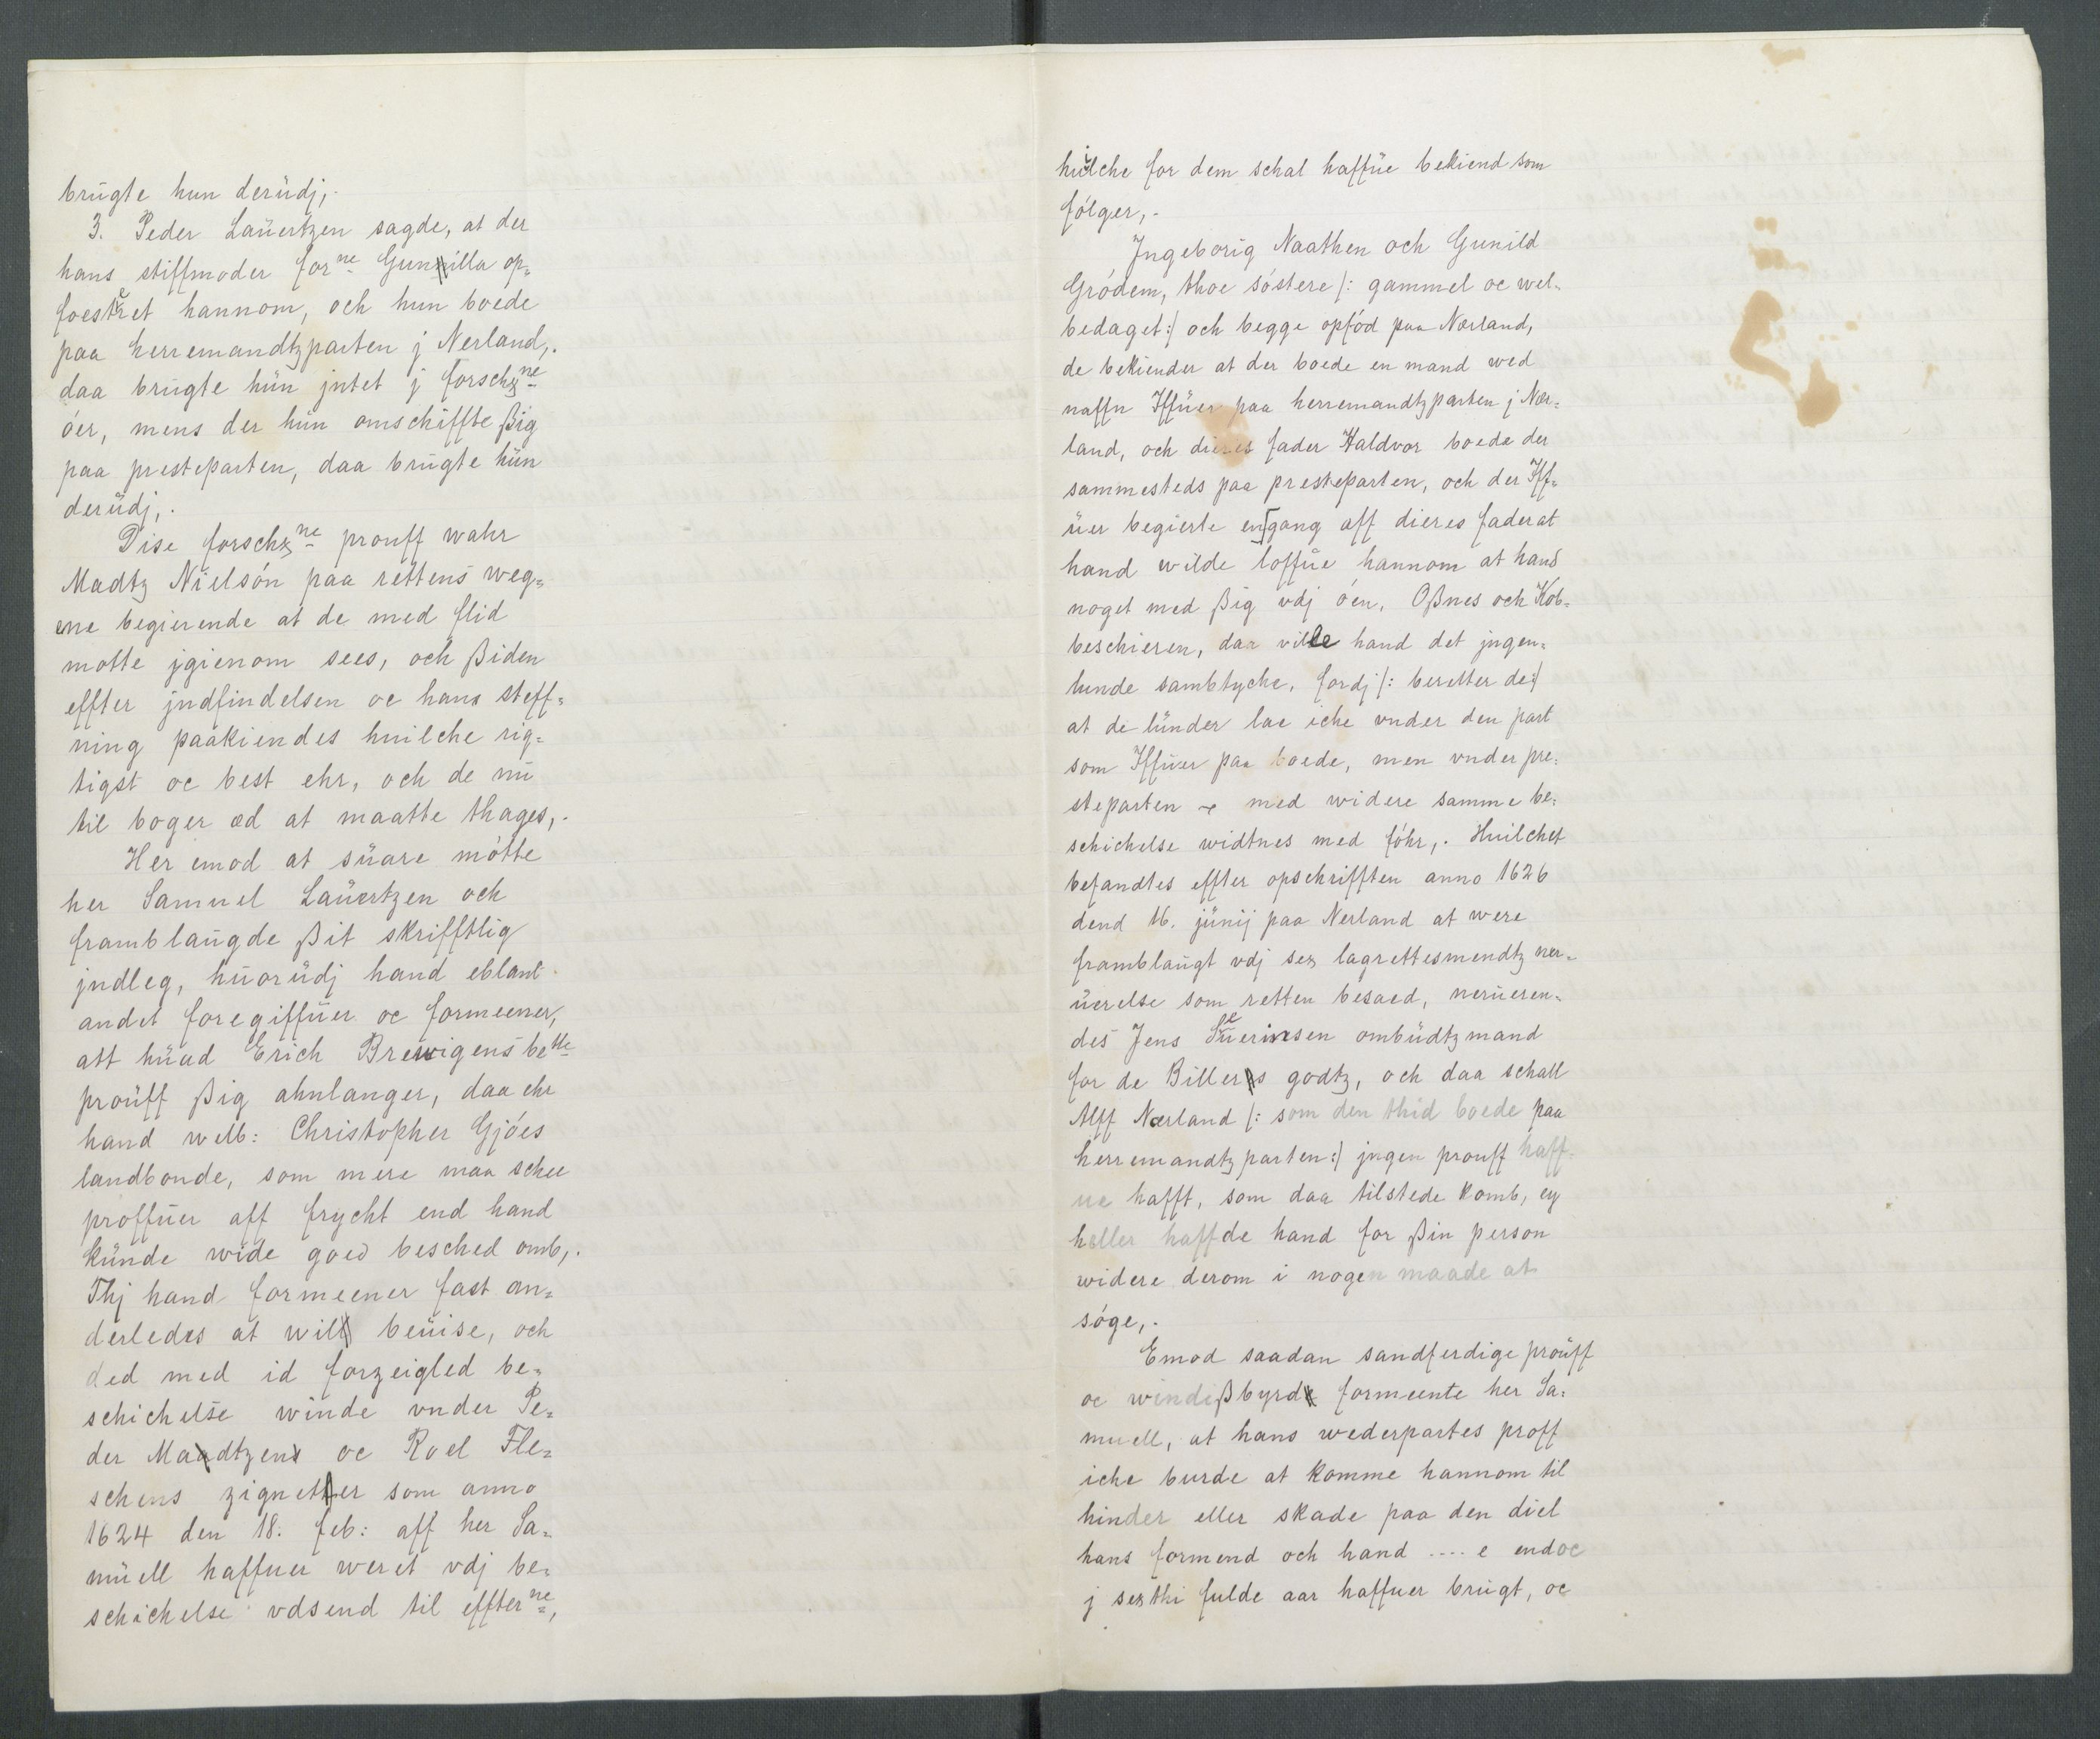 brügte hun derüdj,.
3. Peder Laüertzen sagde, at der
hans stiffmoder forne Gunilla op=
foestret hannom, och hun boede
paa herremandtzparten j Nerland,.
daa brügte hün jntet j forschzne
óer, mens der hün omschiffte ßig
paa presteparten, daa brügte hün
derüdj,.
Dise forschzne prouff wahr
Madtz Nielsón paa rettens weg=
ne begierende at de med flid
motte jgienom sees, och ßiden
effter jndfindelsen oc hans steff=
ning paakiendes huilche rig=
tigst oc best ehr, och de nü
til boger æd at maatte thages,.
Her emod at süare mótte
her Samuel Laüertzen och
framblaügde ßit skrifftlig
jndleg, hüorüdj hand eblant
andet foregiffüer oc formeener,
att hüad Erich Brewigens bette
proüff ßig ahnlanger, daa ehr
hand welb: Christopher Gjóes
landbonde, som mere maa schee
proffüer aff frycht end hand
künde wide goed besched omb,.
Thj hand formeener fast an=
derledes at will beüise, och
ded med id forzeigled be=
schichelse winde vnder Pe=
der Madtzen oc Roel Fle=
schens zigneter som anno
1624 den 18. feb: aff her Sa=
müell haffuer weret vdj be=
schichelse vdsend til effterne,
huilche for dem schal haffüe bekiend som
fólger,.
Jngeborig Naathen och Gunild
Gródem, thoe sóstere /: gammel oc wel=
bedaget :/ och begge opfód paa Nærland,
de bekiender at der boede en mand wed
naffn Iffüer paa herremandtzparten j Nær=
land, och dieres fader Haldvor boede der
sammesteds paa presteparten, och der Iff=
üer begierte engang aff dieres fader at
hand wilde loffüe hannom at haus
noget med ßig vdj óen, Oßnes och Kob=
beschieren, daa ville hand det jngen=
lunde sambtyche, fordj /: beretter de :/
at de lünder lae iche vnder den part
som Iffüer paa boede, men vnder pre=
steparten med widere samme be=
schichelse widtnes med fóhr,. Huilchet
befandtes effter opschrifften anno 1626
dend 16. jünij paa Nerland at were
framblaügt vdj sex lagrettesmendtz ner=
üerelse som retten besaed, nerüeren=
des Jens Süerinsen ombüdtzmand
for de Billes godtz, och daa schall
Alff Nærland /: som den thid boede paa
herremandtzparten :/ jngen prouff haff=
ue hafft, som daa tilstede komb, ey
heller haffde hand for ßin person
widere derom i nogen maade at
sóge,.
Emod saadan sandferdige proüff
oc windißbyrd formeente her Sa=
muell, at hans wederpartes proff
iche burde at komme hannom til
hinder eller skade paa den diel
hans formend och hand .... e endoc
j sexthi fulde aar haffuer brügt, oc